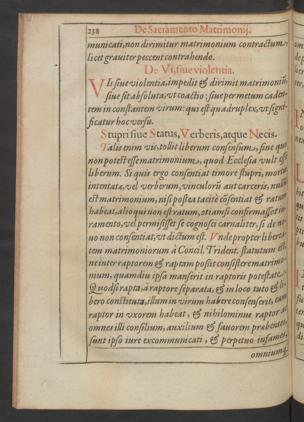 238 De Sacramento Matrimonij.
municati, non dirimitur matrimonium contractum,
licet grauiter peccent contrahendo.
De Vi, siue violentia.
VIs siue violentia, impedit & dirimit matrimoniũ,
siue sit absoluta, vt coactio; siue per metum caden-
tem in constantem virum: qui est quadruplex, vt signi-
ficatur hoc versu.
Stupri siue Status, Verberis, atque Necis.
Talis enim vis, tollit liberum consensum, sine quo
non potest esse matrimonium, quod Ecclesia vult esse
liberum. Si quis ergo consentiat timore stupri, mortis
intentatæ, vel verberum, vinculorũ aut carceris, nullũ
est matrimonium, nisi postea tacitè cõsentiat & ratum
habeat, alioqui non est ratum, etiamsi confirmasset iu-
ramento, vel permisisset se cognosci carnaliter, si de no-
uo non consentiat, vt dictum est. Vnde propter liberta-
tem matrimoniorum à Concil. Trident. statutum est,
ne inter raptorem & raptam possit consistere matrimo-
nium, quamdiu ipsa manserit in raptoris potestate.
Quod si rapta, à raptore separata, & in loco tuto & li-
bero constituta, illum in virum habere consenserit, eam
raptor in vxorem habeat, & nihilominus raptor ac
omnes illi consilium, auxilium & fauorem præbentes,
sunt ipso iure excommunicati, & perpetuo infames,
omniumq́;